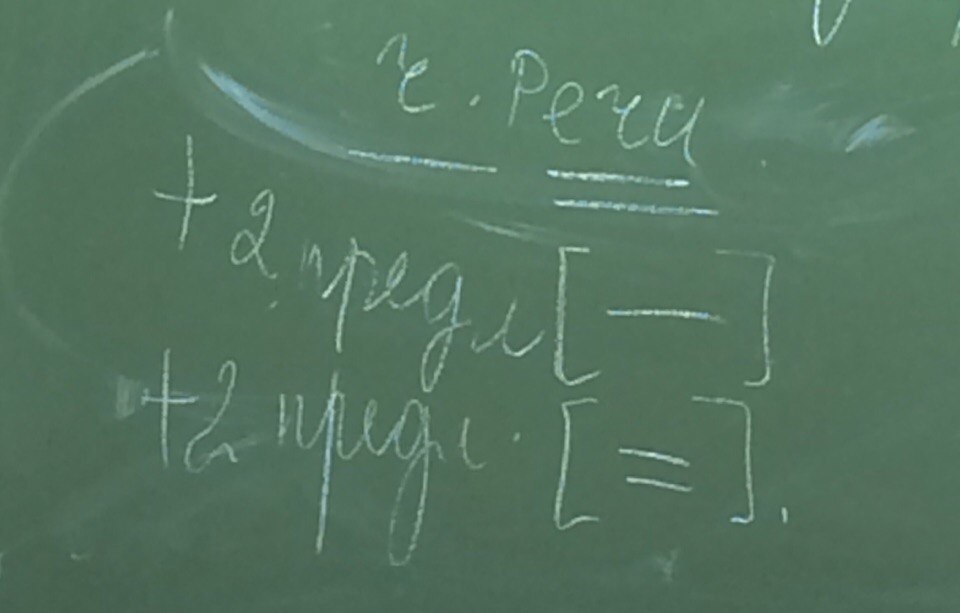 ч. Речи
+ 2 предл [—]
+ 2 предл. [=].